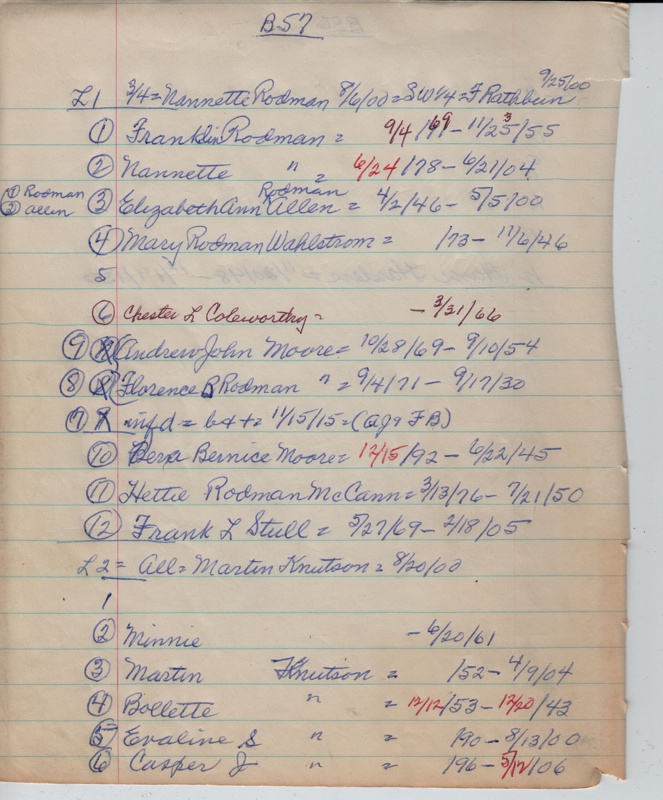 B57
L1 3/4 = Nannette Rodman 8/6/00 = SW 1/4 = F Rathbun 9/25/00
① Franklin Rodman = 9/4/69 - 11/23/55
② Nannette " = 6/24/78 - 6/21/04
① Rodman
② Allen
③ Elizabeth Ann Rodman Allen = 4/2/46 - 5/5/00
④ Mary Rodman Wahlstrom = /73 - 11/6/46
5
⑥ Chester L Coleworthy = - 3/31/66
⑨ Andrew John Moore = 10/28/69 - 9/10/54
⑧ Florence B Rodman " = 9/4/71 - 9/17/30
⑦ infd = b&t = 11/15/15 = (of F B)
⑩ Bernice Moore = 12/15/92 - 6/22/45
⑪ Hettie Rodman McCann = 3/13/76 - 7/21/50
⑫ Frank L Stull = 5/27/69 - 2/18/05
L2 = All = Martin Knutson = 8/20/00
1
② Minnie - 6/20/61
③ Martin Knutson = /52 - 4/9/04
④ Bollette " = 12/12/53 - 12/20/43
⑤ Evaline S " = /90 - 8/13/00
⑥ Casper J " = /96 - 5/12/06